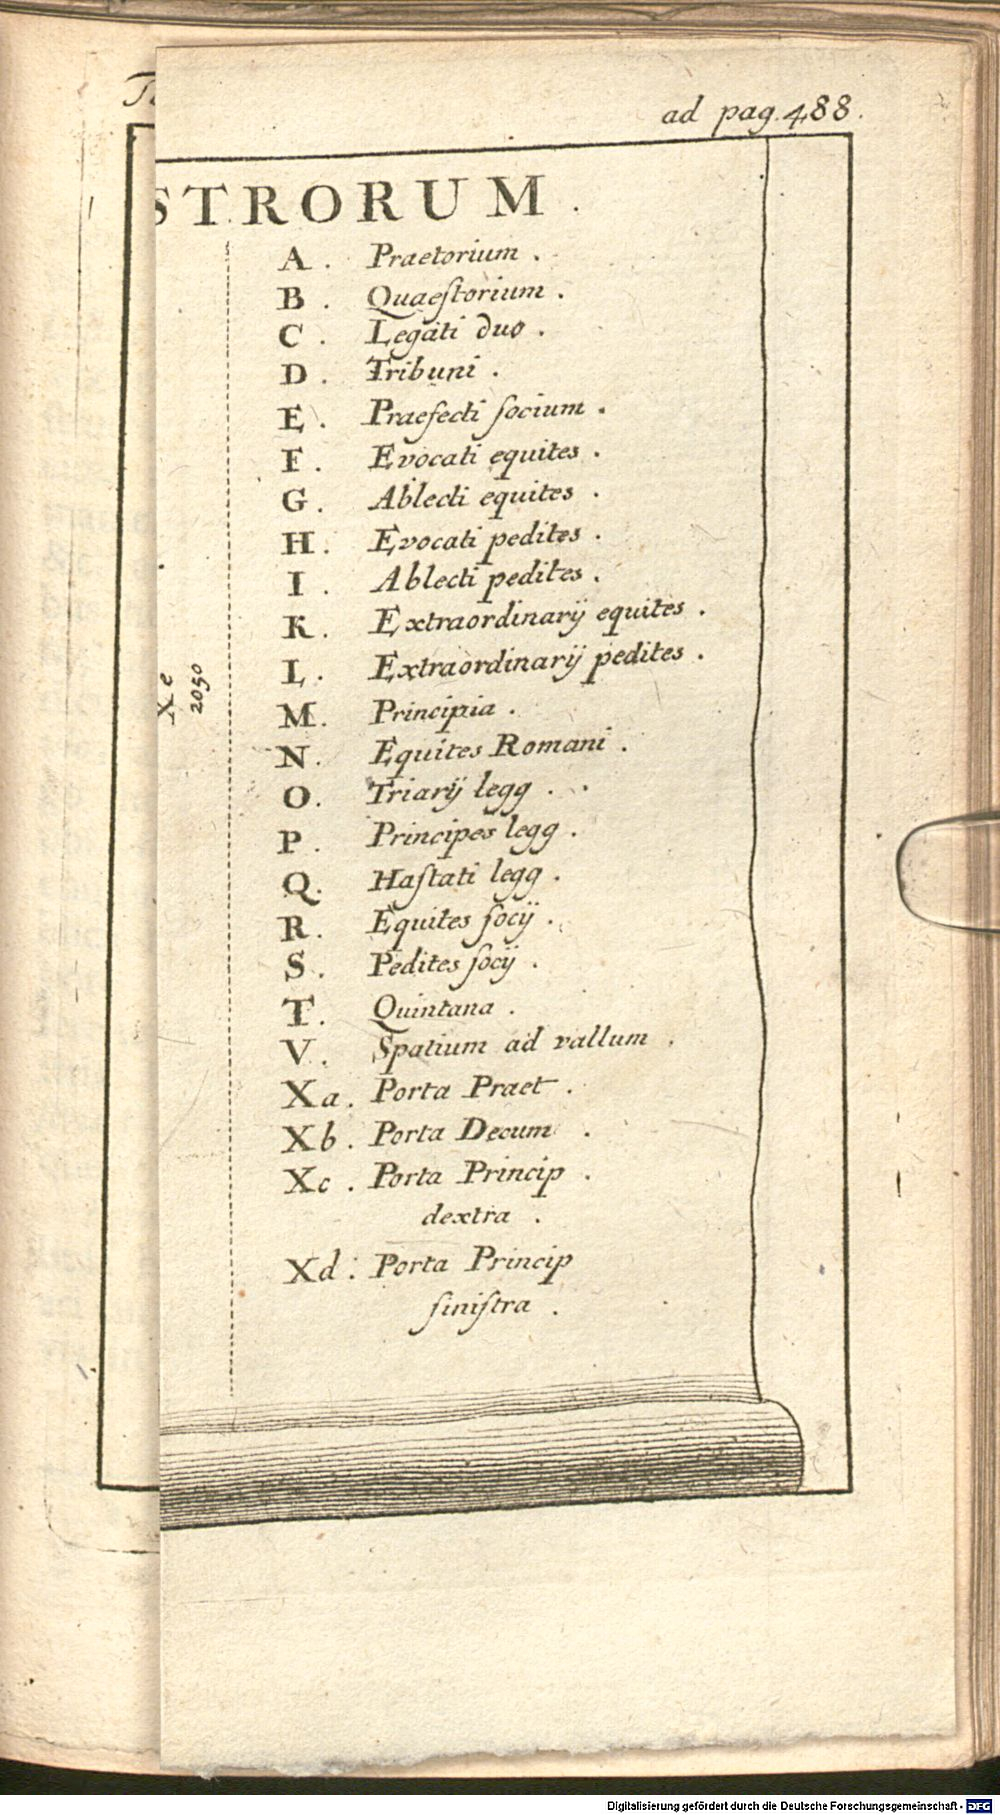 ad pag. 488.
STRORUM.
A. Praetorium.
B. Quaeſtorium.
C. Legati duo.
D. Tribuni.
E. Praefecti ſocium.
F. Evocati equites.
G. Ablecti equites.
H. Evocati pedites.
I. Ablecti pedites.
K. Extraordinarij equites.
L. Extraordinarij pedites.
M. Principia.
N. Equites Romani.
O. Triarij legg.
P. Principes legg.
Q. Haſtati legg.
R. Equites ſocij.
S. Pedites ſocij.
T. Quintana.
V. Spatium ad vallum.
Xa. Porta Praet.
Xb. Porta Decum.
Xc. Porta Princip.
dextra.
Xd. Porta Princip
ſiniſtra.
Xe
2050
Digitalisierung gefördert durch die Deutsche Forschungsgemeinschaft - DFG